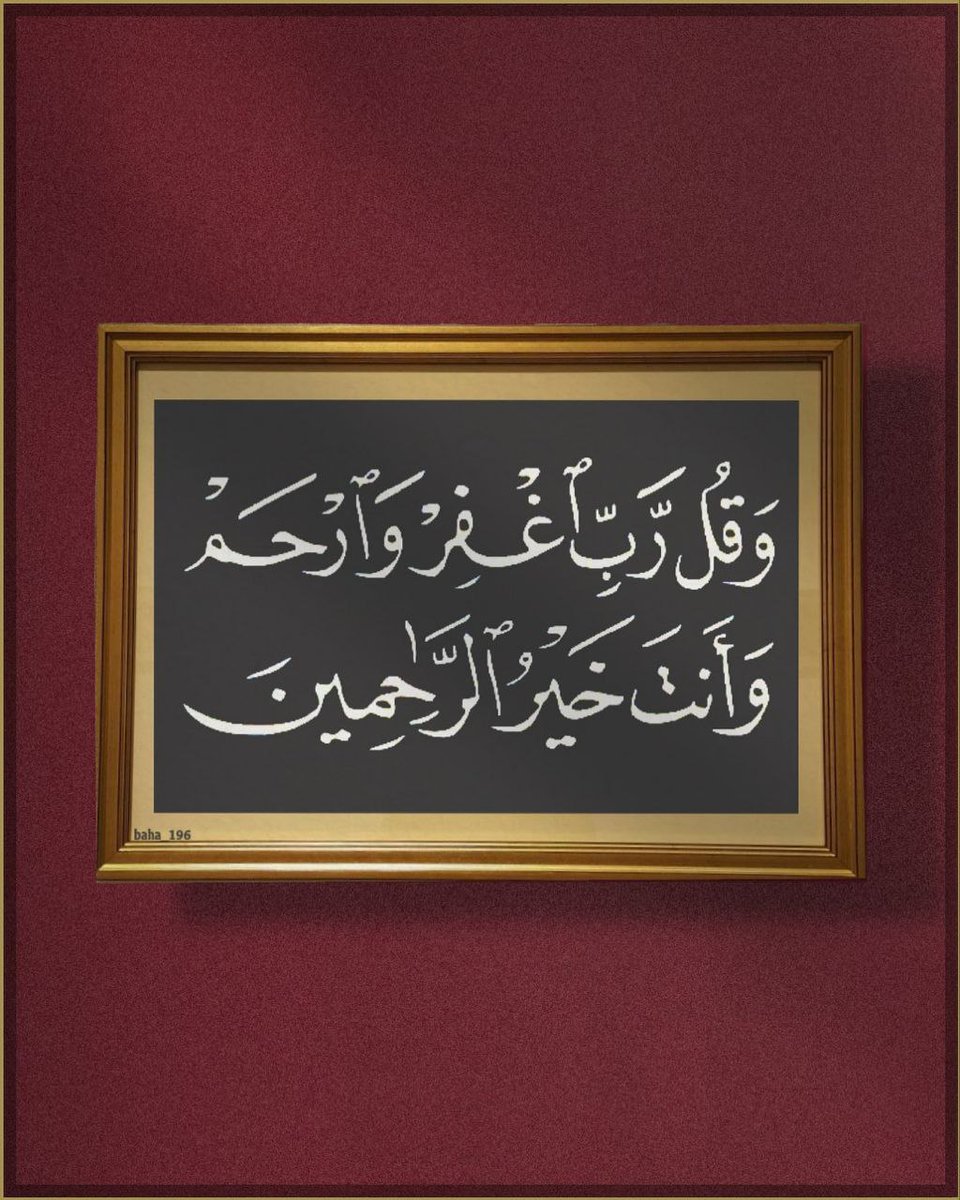 وَقُل رَّبِّ ٱغْفِرْ وَٱرْحَمْ
وَأَنتَ خَيْرُ ٱلرَّٰحِمِينَ
baha_196